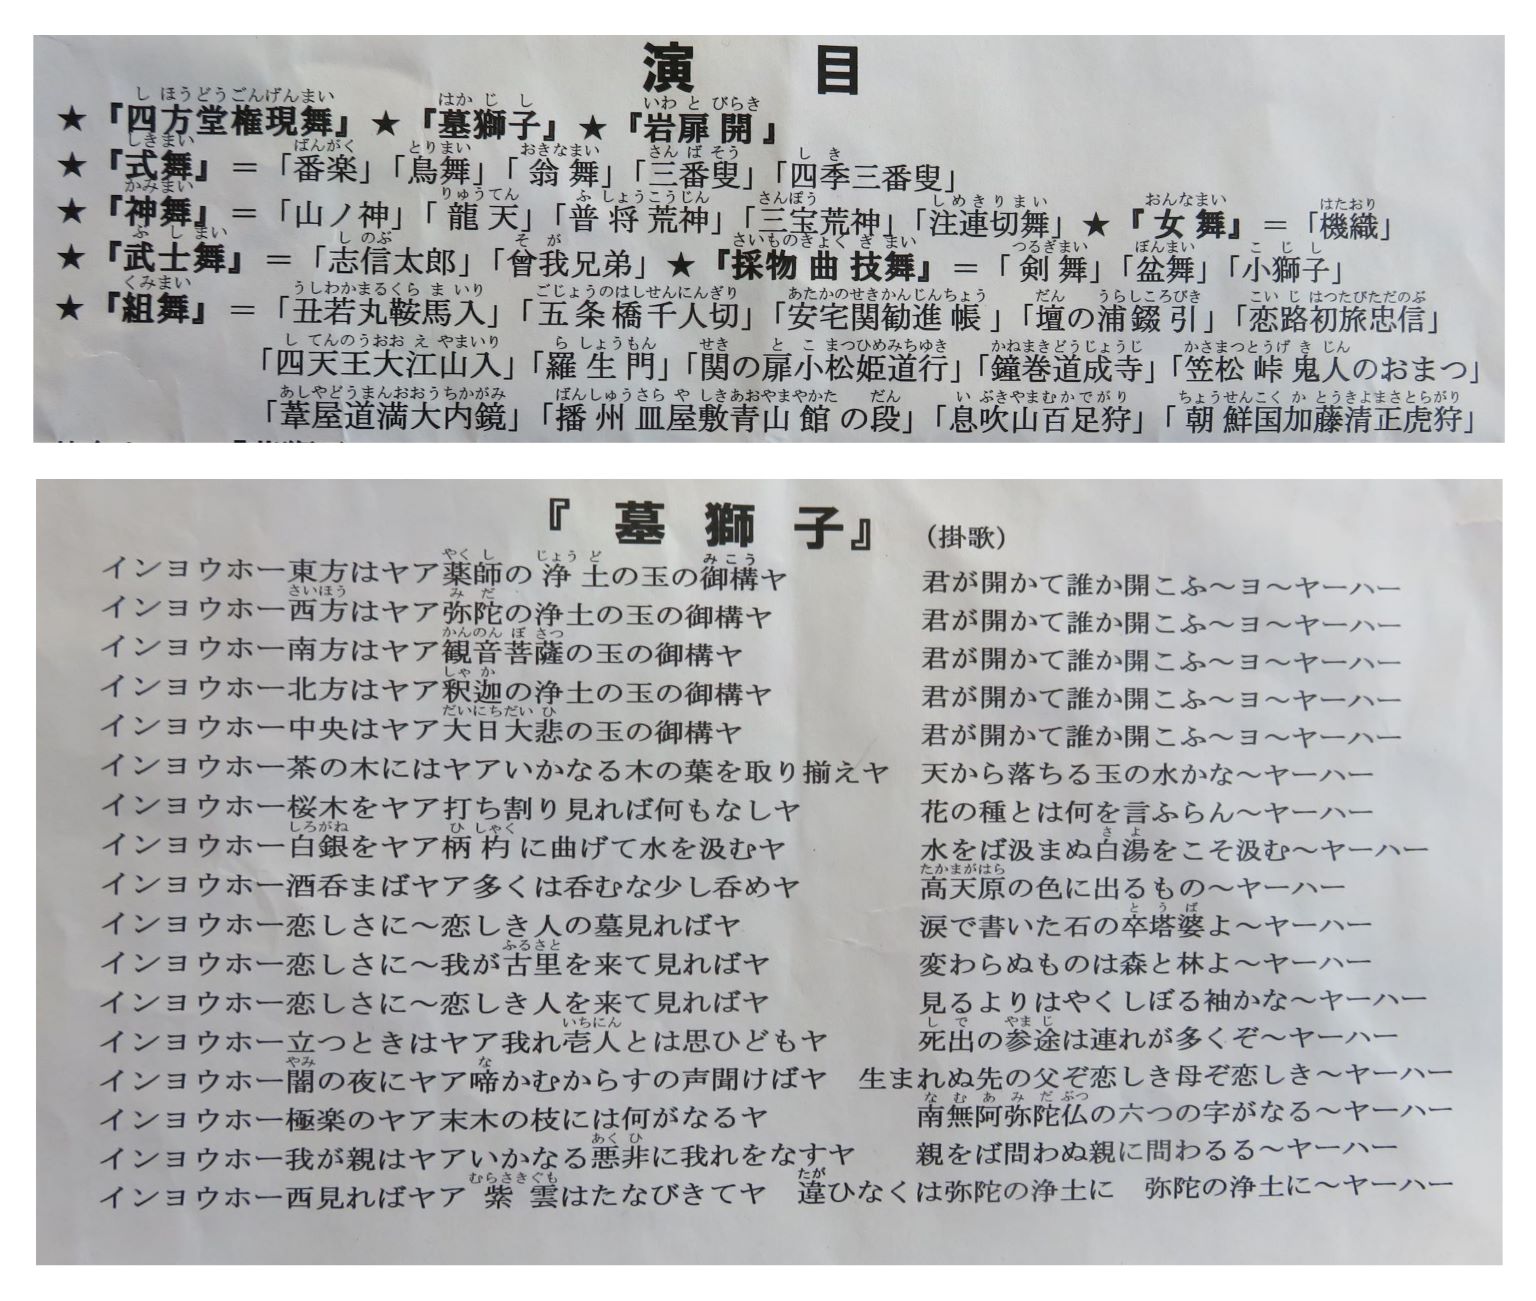 演目
★『四方堂権現舞』★『墓獅子』★『岩扉開』
★『式舞』＝「番楽」「鳥舞」「翁舞」「三番叟」「四季三番叟」
★『神舞』＝「山ノ神」「龍天」「普将荒神」「三宝荒神」「注連切舞」★『女舞』＝「機織」
★『武士舞』＝「志信太郎」「曾我兄弟」★『採物曲技舞』＝「剣舞」「盆舞」「小獅子」
★『組舞』＝「丑若丸鞍馬入」「五条橋千人切」「安宅関勧進帳」「壇の浦錣引」「恋路初旅忠信」
「四天王大江山入」「羅生門」「関の扉小松姫道行」「鐘巻道成寺」「笠松峠鬼人のおまつ」
「葦屋道満大内鏡」「播州皿屋敷青山館の段」「息吹山百足狩」「朝鮮国加藤清正虎狩」
『墓獅子』（掛歌）
インヨウホー東方はヤア薬師の浄土の玉の御構ヤ　君が開かて誰か開こふ～ヨ～ヤーハー
インヨウホー西方はヤア弥陀の浄土の玉の御構ヤ　君が開かて誰か開こふ～ヨ～ヤーハー
インヨウホー南方はヤア観音菩薩の玉の御構ヤ　君が開かて誰か開こふ～ヨ～ヤーハー
インヨウホー北方はヤア釈迦の浄土の玉の御構ヤ　君が開かて誰か開こふ～ヨ～ヤーハー
インヨウホー中央はヤア大日大悲の玉の御構ヤ　君が開かて誰か開こふ～ヨ～ヤーハー
インヨウホー茶の木にはヤアいかなる木の葉を取り揃えヤ　天から落ちる玉の水かな～ヤーハー
インヨウホー桜木をヤア打ち割り見れば何もなしヤ　花の種とは何を言ふらん～ヤーハー
インヨウホー白銀をヤア柄杓に曲げて水を汲むヤ　水をば汲まぬ白湯をこそ汲む～ヤーハー
インヨウホー酒呑まばヤア多くは呑むな少し呑めヤ　高天原の色に出るもの～ヤーハー
インヨウホー恋しさに～恋しき人の墓見ればヤ　涙で書いた石の卒塔婆よ～ヤーハー
インヨウホー恋しさに～我が古里を来て見ればヤ　変わらぬものは森と林よ～ヤーハー
インヨウホー恋しさに～恋しき人を来て見ればヤ　見るよりはやくしぼる袖かな～ヤーハー
インヨウホー立つときはヤア我れ壱人とは思ひどもヤ　死出の参途は連れが多くぞ～ヤーハー
インヨウホー闇の夜にヤア啼かむからすの声聞けばヤ　生まれぬ先の父ぞ恋しき母ぞ恋しき～ヤーハー
インヨウホー極楽のヤア末木の枝には何がなるヤ　南無阿弥陀仏の六つの字がなる～ヤーハー
インヨウホー我が親はヤアいかなる悪非に我れをなすヤ　親をば問わぬ親に問わるる～ヤーハー
インヨウホー西見ればヤア紫雲はたなびきてヤ　違ひなくは弥陀の浄土に　弥陀の浄土に～ヤーハー